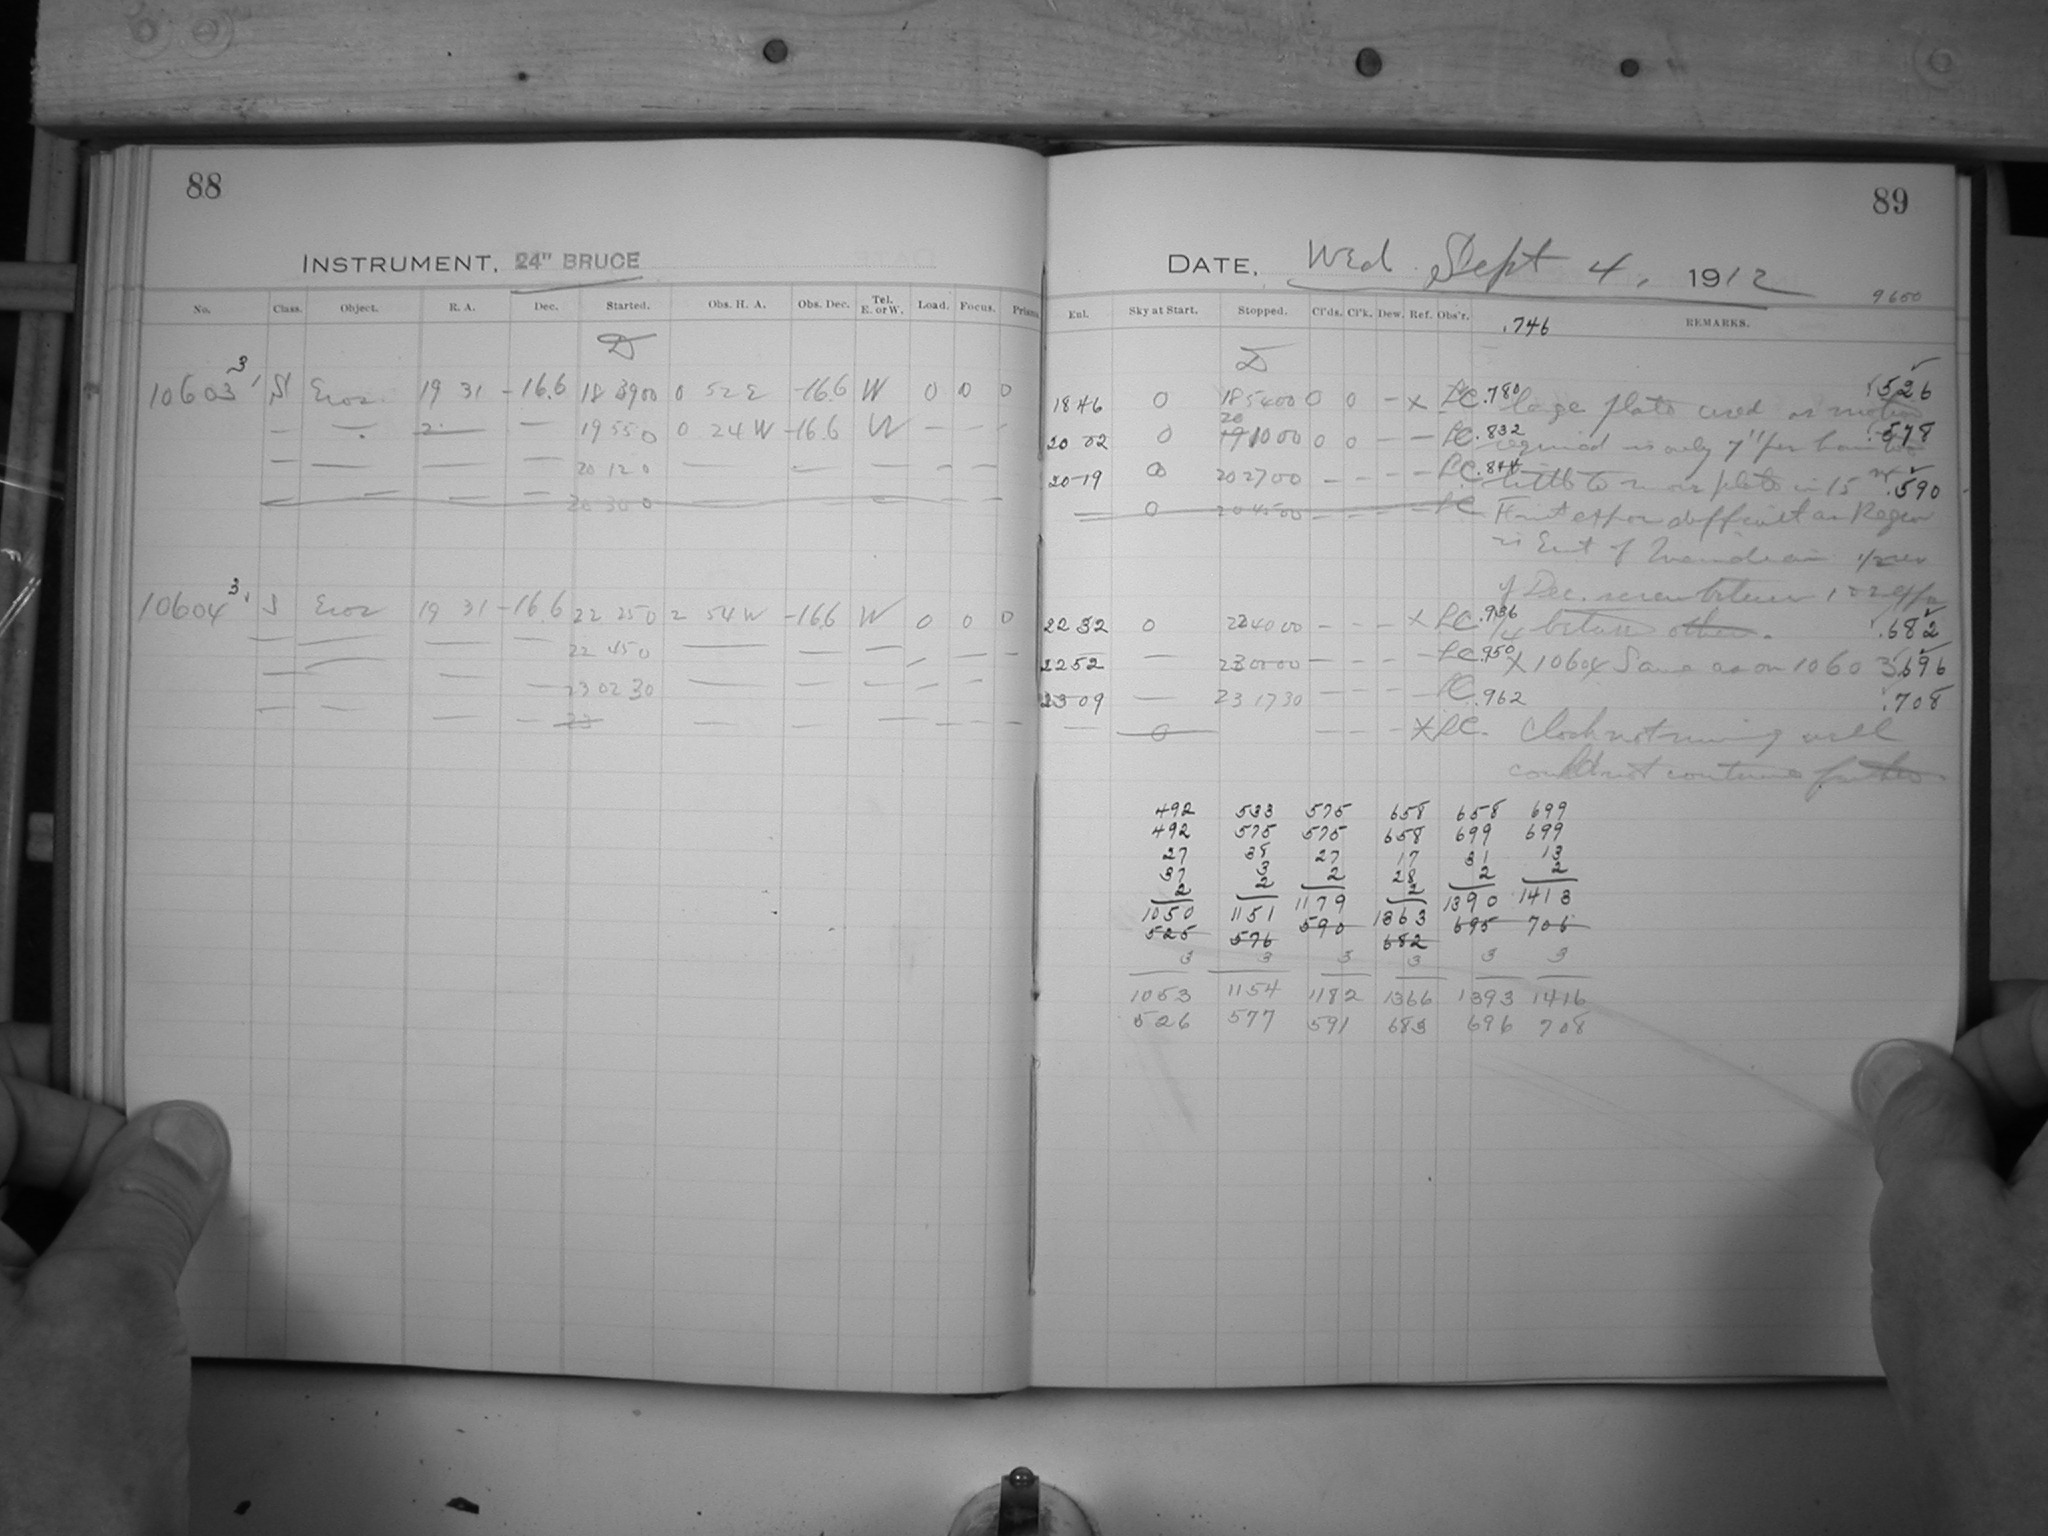 88
INSTRUMENT, 24" BRUCE
No. Class. Object. R. A. Dec. Started. Obs. H. A. Obs. Dec. Tel. E. or W. Load. Focus. Prism.
10603 3 S Eros 19 31 -16.6 18 39 00 0 52 E -16.6 W 0 0 0
19 55 0 0 24 W -16.6 W
20 12 0
20 30 0
10604 3 S Eros 19 31 -16.6 22 25 0 2 54 W -16.6 W 0 0 0
22 45 0
23 02 30
23
89
DATE, Wed Sept 4, 1912
9600
Enl. Sky at Start. Stopped. Cl'ds. Cl'k. Dew. Ref. Obs'r. REMARKS.
.746
18 46 0 18 54 00 0 0 - x LC .780 large plate used as motion .526
20
20 02 0 19 10 00 0 0 - - LC .832 required is only 7" per hour .578
20 19 0 20 27 00 - - - - LC .844 little to move plate in 15 m .590
0 20 45 00 - - - - LC First expos difficult as Region
is East of Meridian 1/2 rev
of Dec. screw between 1 & 2 expo
22 32 0 22 40 00 - - - x LC .936 1/4 between others. .682
22 52 — 23 00 00 - - - - LC .950 x 10604 Same as on 10603 .696
23 09 — 23 17 30 - - - LC .962 .708
— 0 - - - x LC. Clock not running well
could not continue further
492 533 575 658 658 699
492 575 575 658 699 699
27 38 27 17 31 13
37 3 2 28 2 2
2 2 1179 2 1390 1413
1050 1151 590 1363 695 706
525 576 682
3 3 3 3 3 3
1053 1154 1182 1366 1393 1416
526 577 591 683 696 708